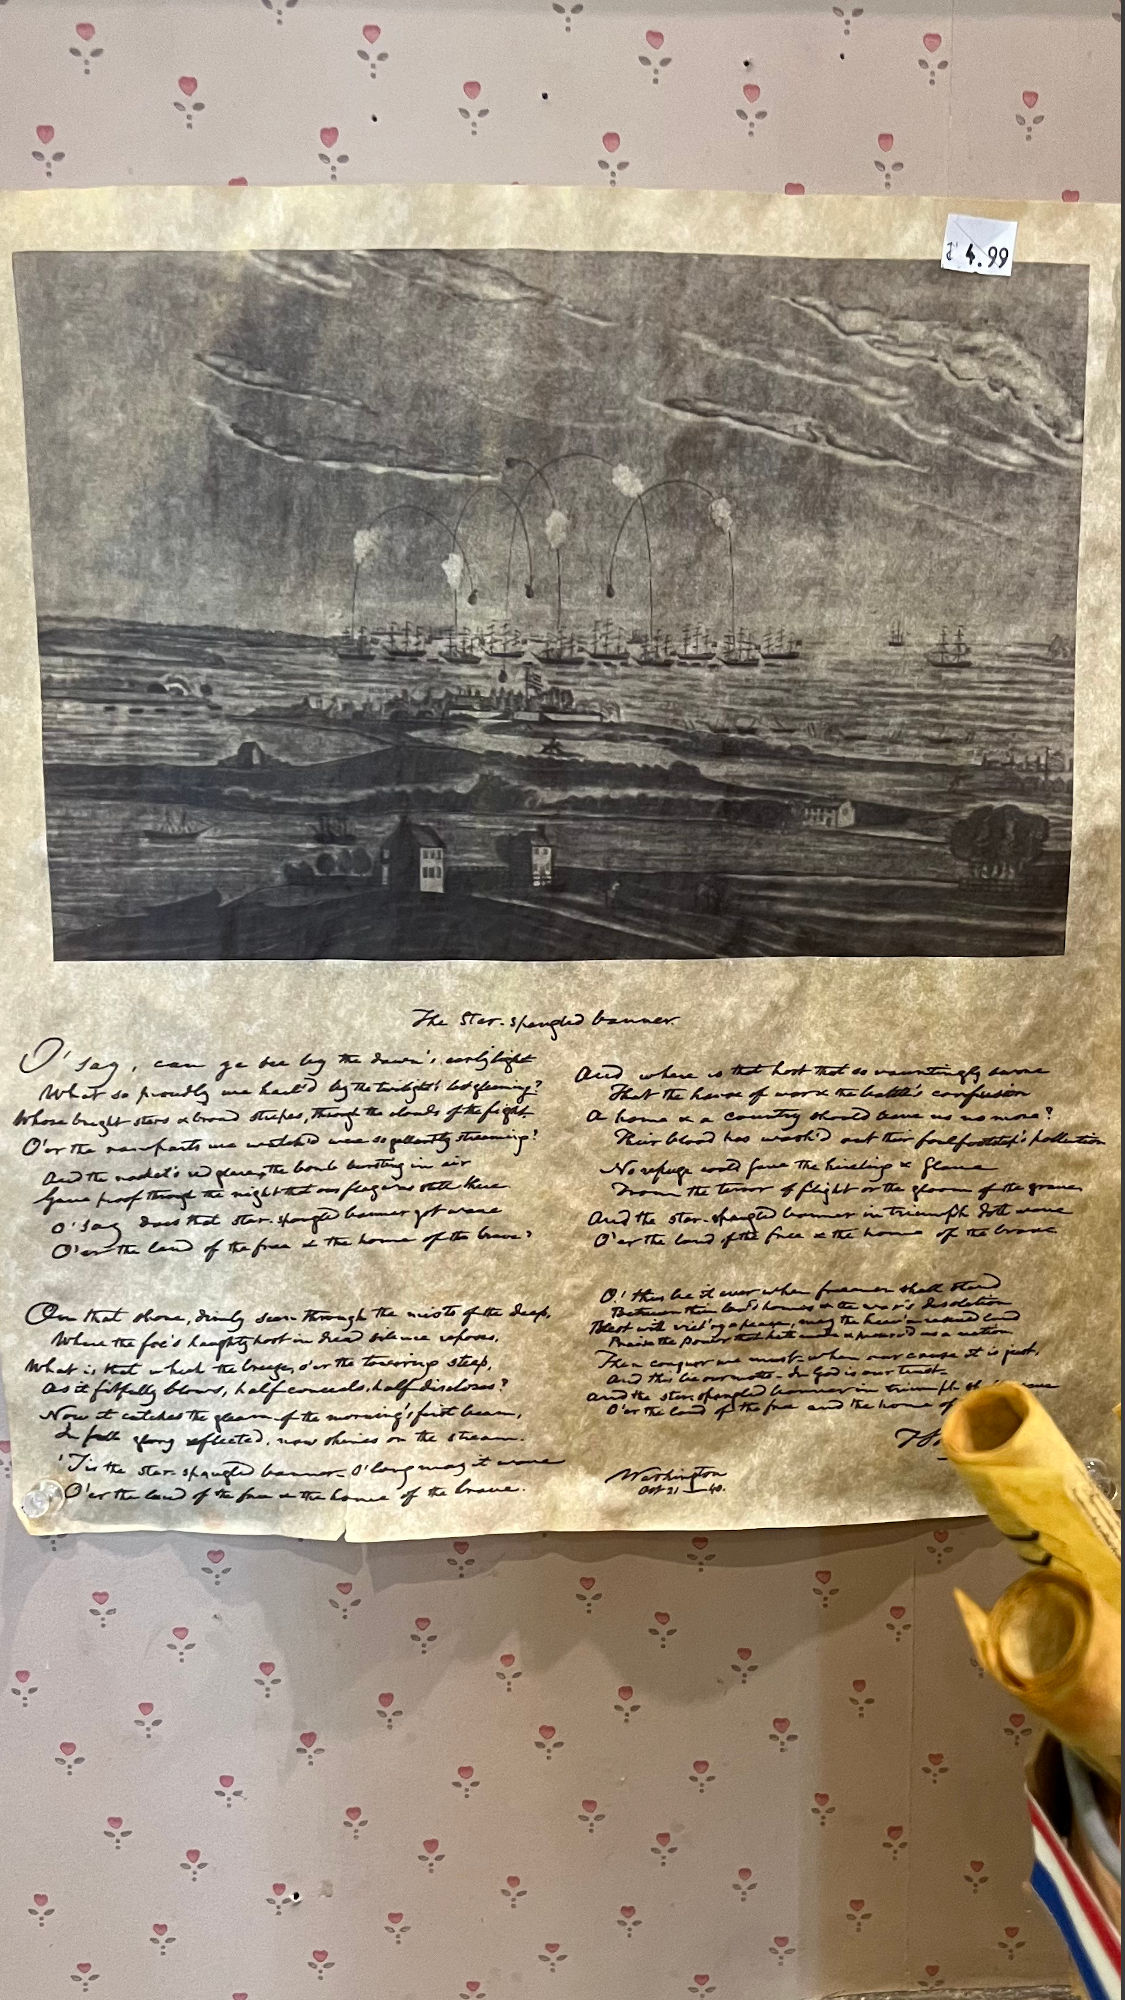 4.99
The Star-spangled banner.
O' say, can ye see by the dawn's early light
What so proudly we hail'd by the twilight's last gleaming?
Whose bright stars & broad stripes, through the clouds of the fight
O'er the ramparts we watch'd were so gallantly streaming?
And the rocket's red glare, the bomb bursting in air
Gave proof through the night that our flag was still there
O' say does that star-spangled banner yet wave
O'er the land of the free & the home of the brave?
On that shore, dimly seen through the mists of the deep,
Where the foe's haughty host in dread silence reposes,
What is that which the breeze, o'er the towering steep,
As it fitfully blows, half conceals, half discloses?
Now it catches the gleam of the morning's first beam,
In full glory reflected, now shines on the stream.
'Tis the star-spangled banner - O' long may it wave
O'er the land of the free & the home of the brave.
And where is that host that so vauntingly swore
That the havoc of war & the battle's confusion
A home & a country should leave us no more?
Their blood has wash'd out their foul footstep's pollution
No refuge could save the hireling & slave
From the terror of flight or the gloom of the grave
And the star-spangled banner in triumph doth wave
O'er the land of the free & the home of the brave
O! thus be it ever when freemen shall stand
Between their lov'd homes & the war's desolation
Blest with vict'ry & peace, may the heav'n rescued land
Praise the power that hath made & preserv'd us a nation
Then conquer we must, when our cause it is just,
And this be our motto - In God is our trust -
And the star-spangled banner in triumph
O'er the land of the free and the home of
Washington
Oct 21 — 40.